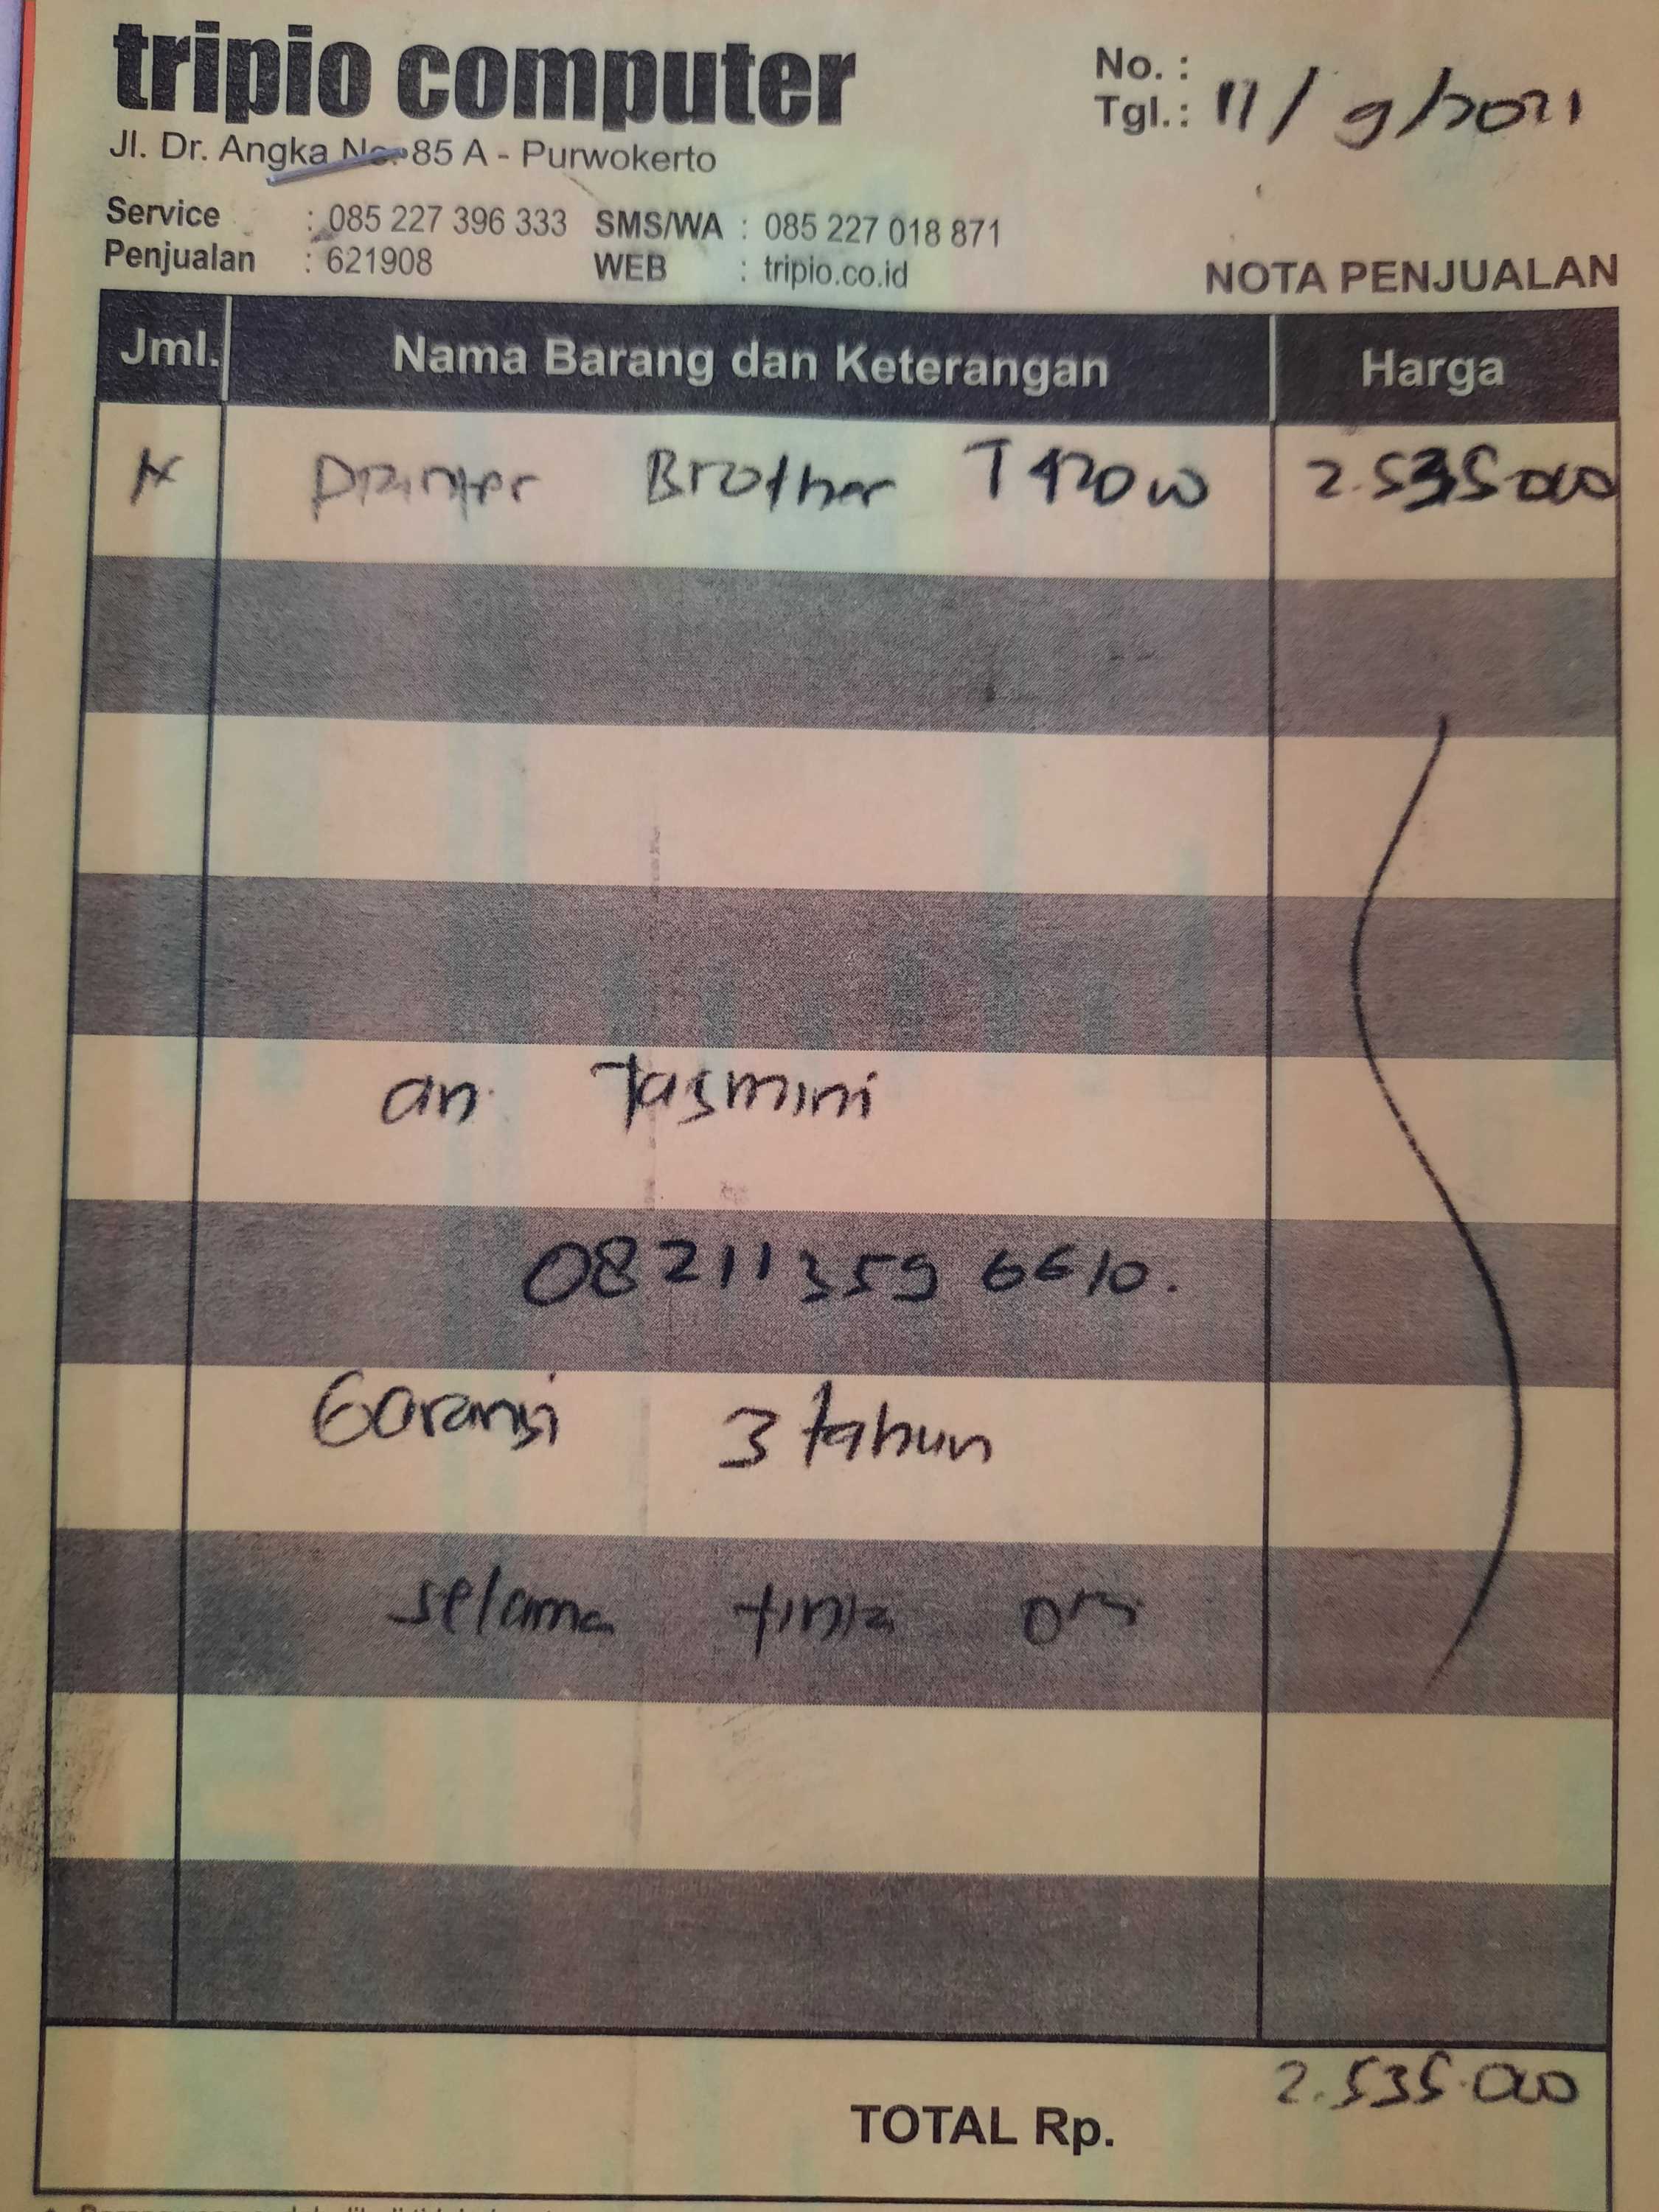 tripio computer
Jl. Dr. Angka No. 85 A - Purwokerto
No. :
Tgl. : 11/9/2021
Service : 085 227 396 333 SMS/WA : 085 227 018 871
Penjualan : 621908 WEB : tripio.co.id
NOTA PENJUALAN
Jml. Nama Barang dan Keterangan Harga
Printer Brother T420w 2.535.000
an. Tasmini
082113596610.
Garansi 3 tahun
selama tinta ori
2.535.000
TOTAL Rp.